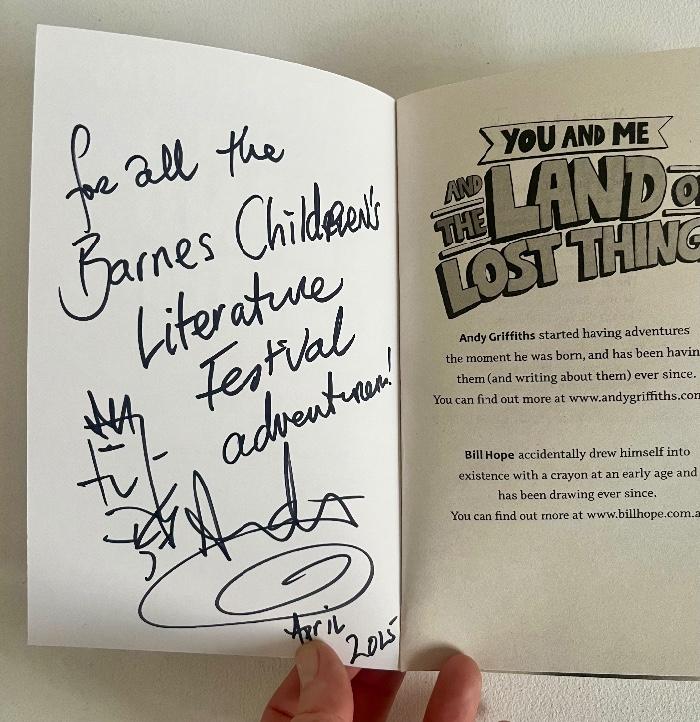 for all the
Barnes Children's
Literature
Festival
adventurers!
Andy
April
2025
YOU AND ME
AND
THE LAND O
LOST THING
Andy Griffiths started having adventures
the moment he was born, and has been havin
them (and writing about them) ever since.
You can find out more at www.andygriffiths.com
Bill Hope accidentally drew himself into
existence with a crayon at an early age and
has been drawing ever since.
You can find out more at www.billhope.com.a